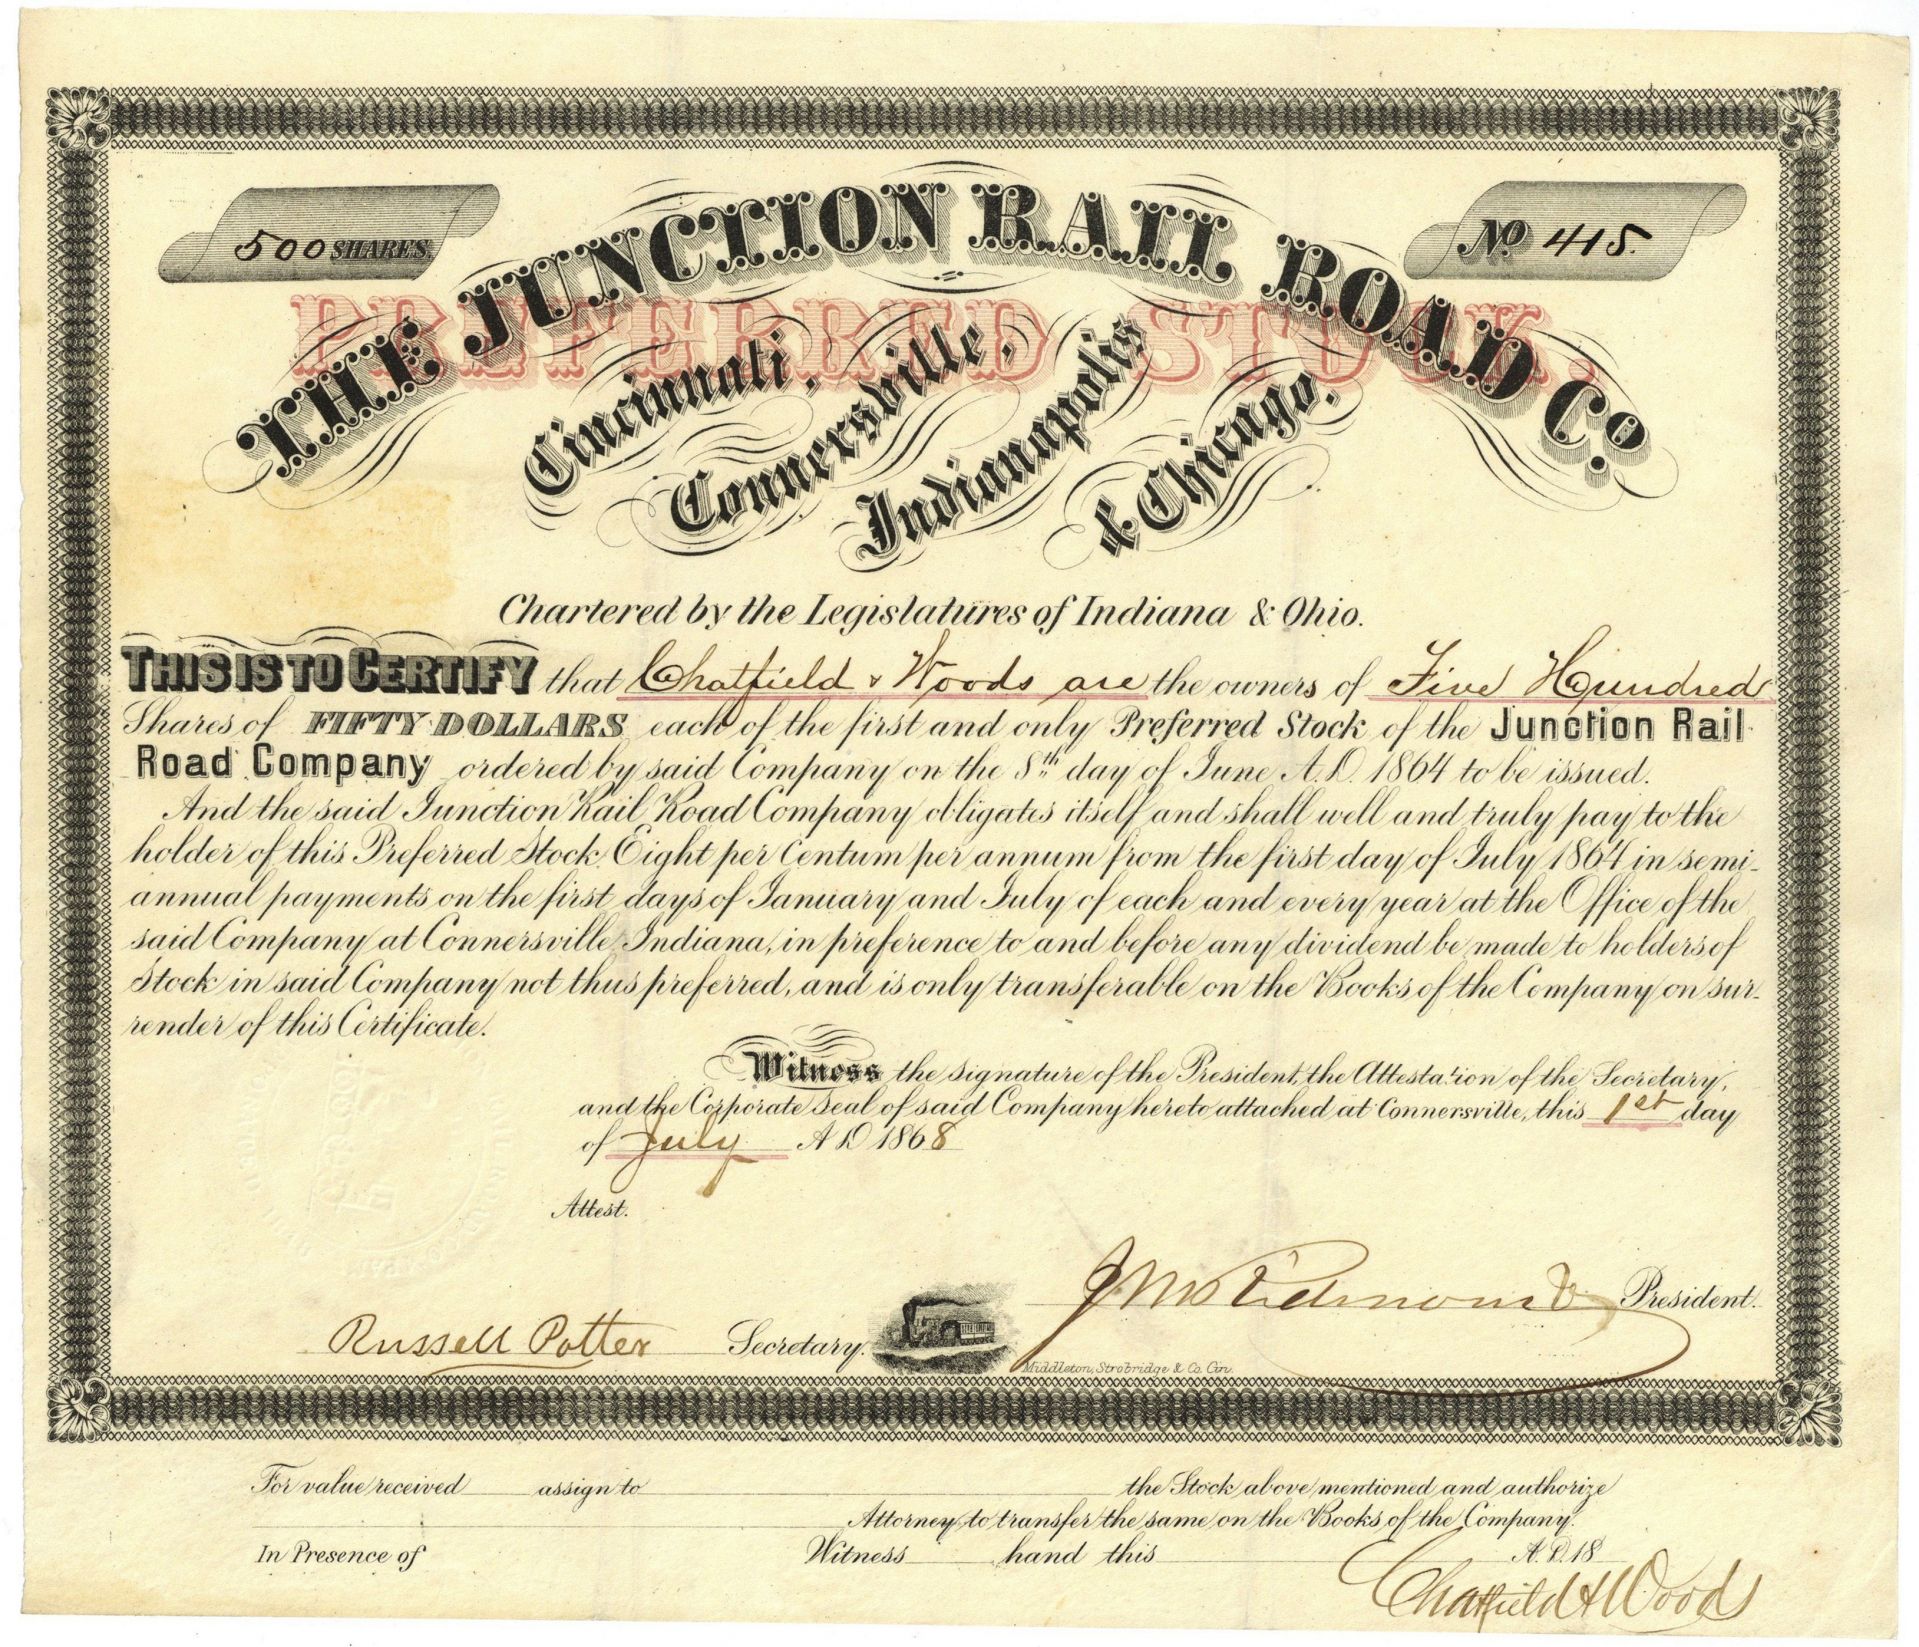 500 SHARES.
No 415.
THE JUNCTION RAIL ROAD Co.
PREFERRED STOCK.
Cincinnati,
Connersville,
Indianapolis
& Chicago.
Chartered by the Legislatures of Indiana & Ohio.
THIS IS TO CERTIFY that Chatfield & Woods are the owners of Five Hundred
Shares of FIFTY DOLLARS each of the first and only Preferred Stock of the Junction Rail
Road Company ordered by said Company on the 8th day of June A.D. 1864 to be issued.
And the said Junction Rail Road Company obligates itself and shall well and truly pay to the
holder of this Preferred Stock Eight per Centum per annum from the first day of July 1864 in semi-
annual payments on the first days of January and July of each and every year at the Office of the
said Company at Connersville, Indiana, in preference to and before any dividend be made to holders of
Stock in said Company not thus preferred, and is only transferable on the Books of the Company on sur-
render of this Certificate.
Witness the signature of the President, the Attestation of the Secretary,
and the Corporate Seal of said Company hereto attached at Connersville, this 1st day
of July A D 1868
Attest.
President.
Russell Potter Secretary.
Middleton, Strobridge & Co. Cin.
For value received assign to the Stock above mentioned and authorize
Attorney to transfer the same on the Books of the Company.
In Presence of Witness hand this A.D. 18
Chatfield & Woods